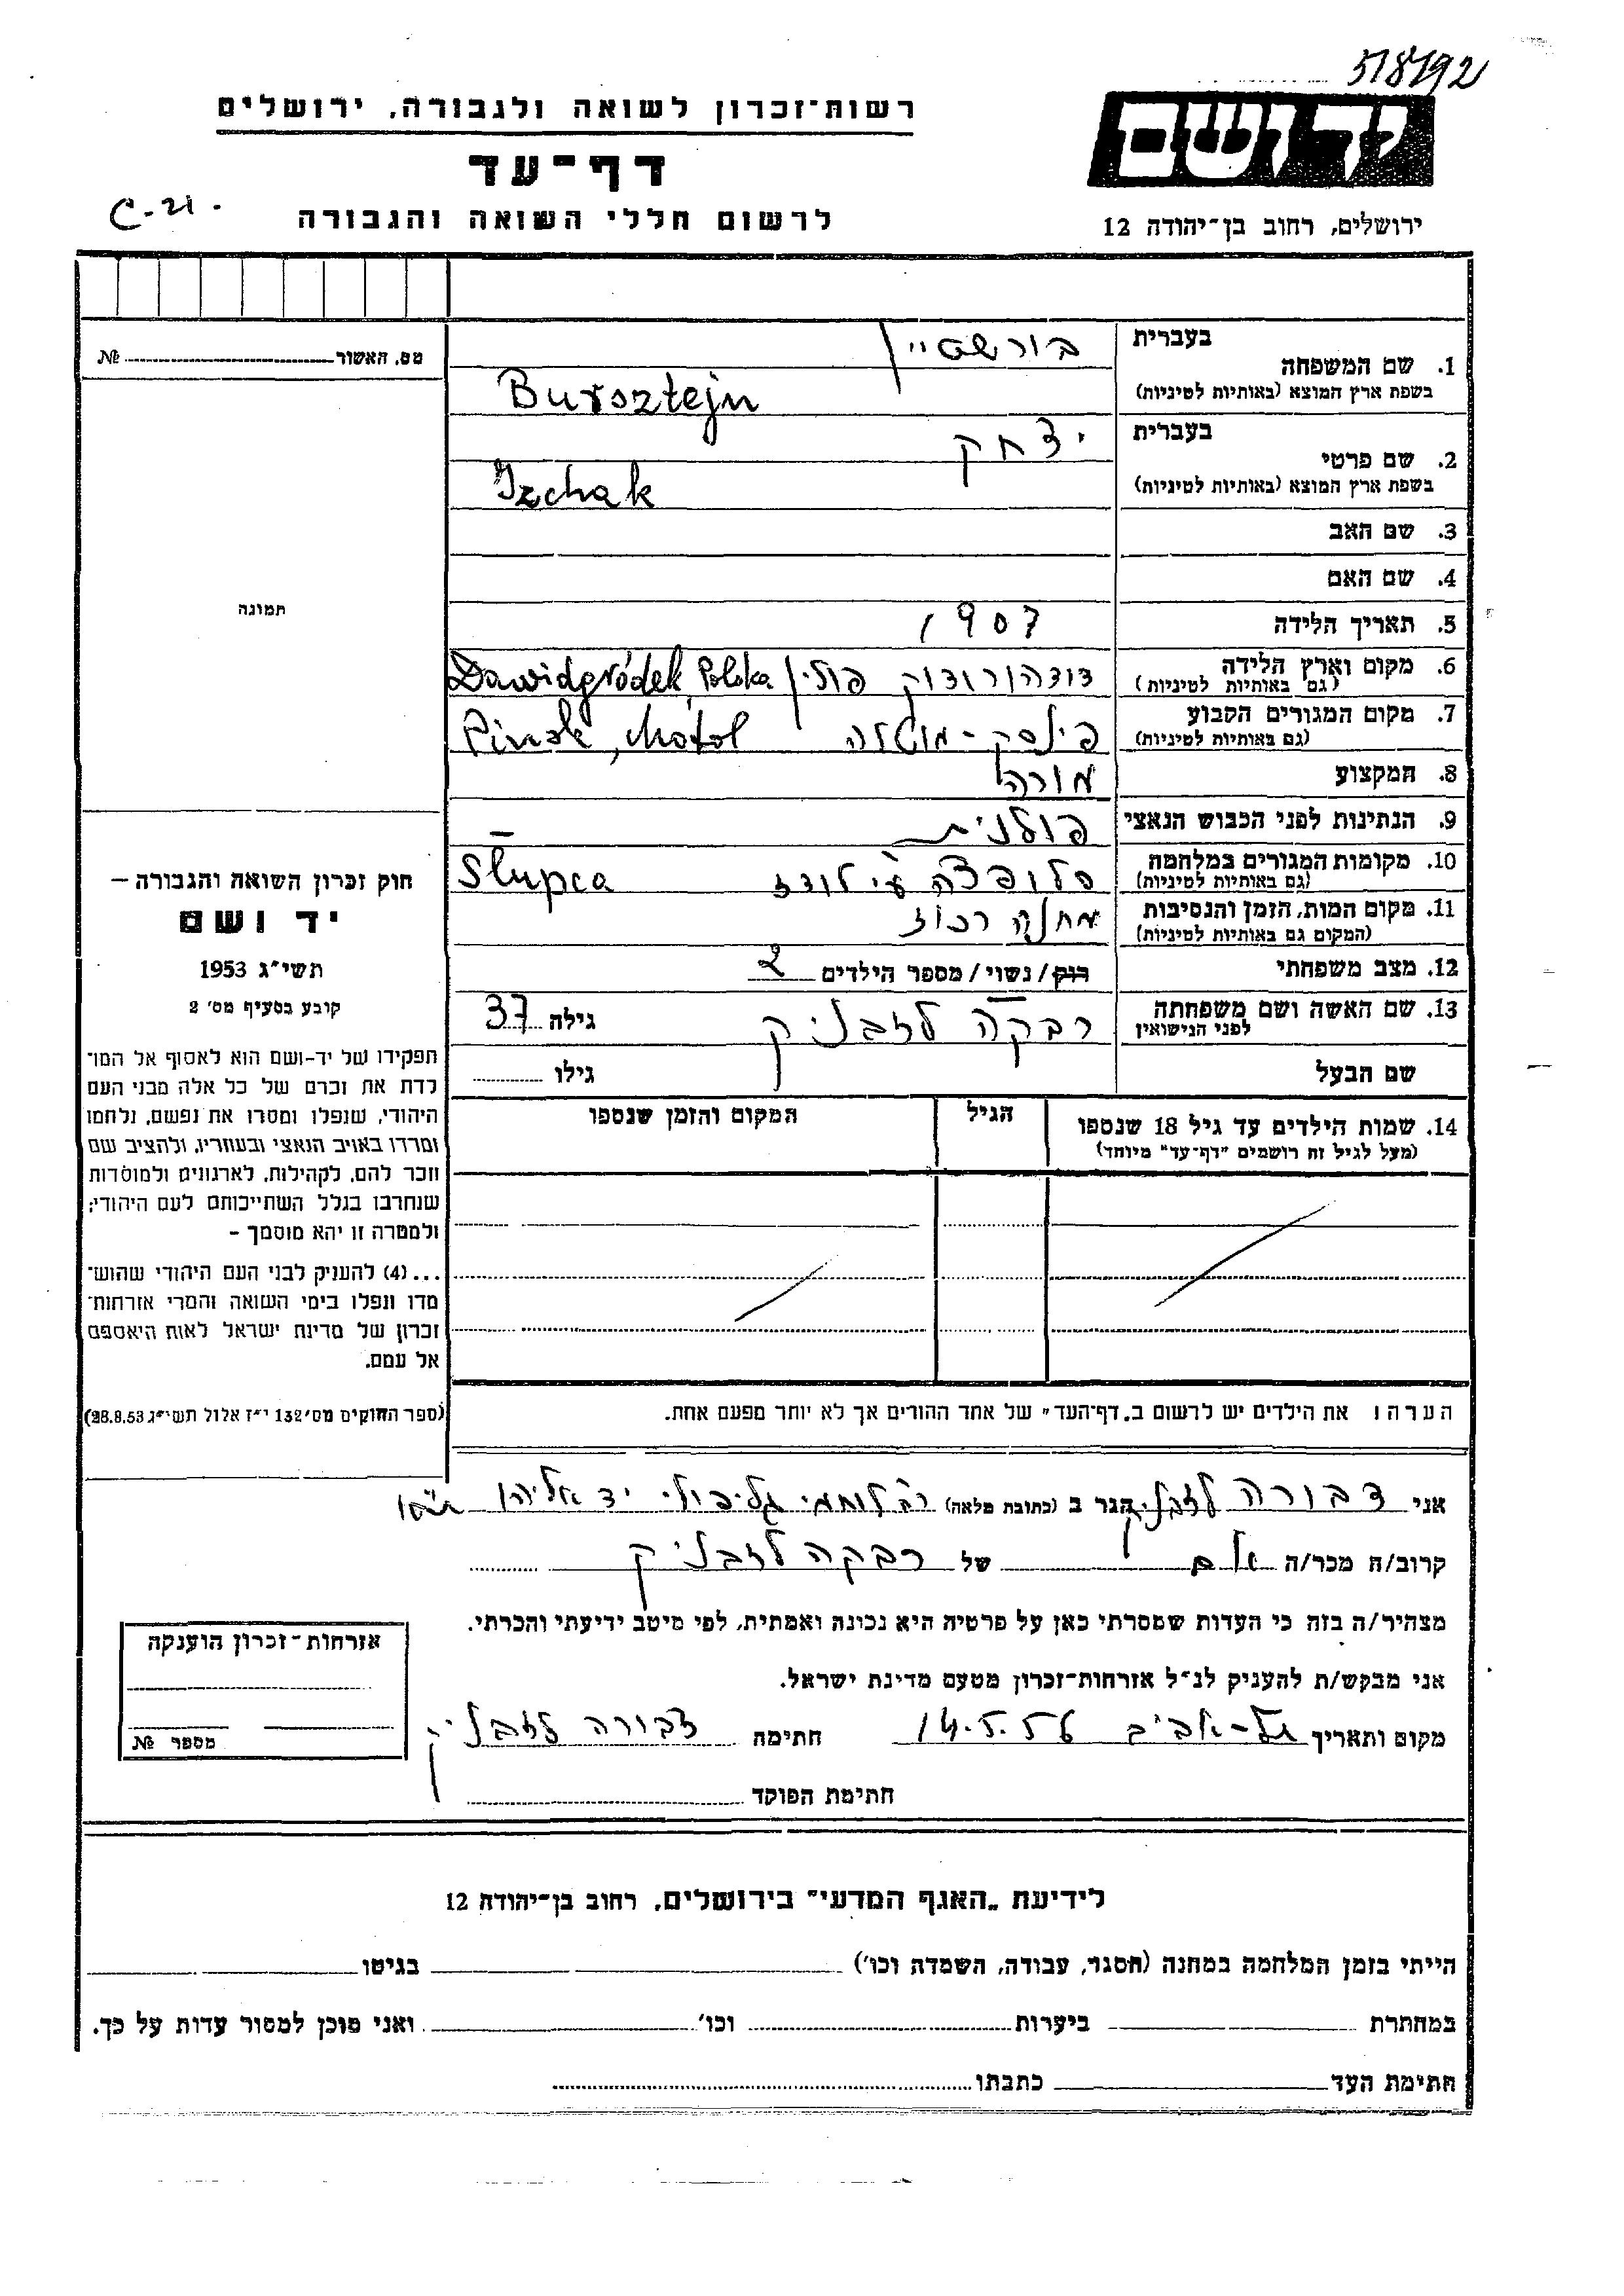 518192
רשות־זכרון לשואה ולגבורה, ירושלים
ידושם
דף־עד
C-21.
לרשום חללי השואה והגבורה
ירושלים, רחוב בן־יהודה 12
מס. האשור № 
בעברית
1. שם המשפחה
בשפת ארץ המוצא (באותיות לטיניות)
בורשטיין
Bursztejn
בעברית
2. שם פרטי
בשפת ארץ המוצא (באותיות לטיניות)
יצחק
Izchak
3. שם האב
4. שם האם
תמונה
5. תאריך הלידה 1907
6. מקום וארץ הלידה
(גם באותיות לטיניות)
דודהורודוק פולין Dawidgródek, Polska
7. מקום המגורים הקבוע
(גם באותיות לטיניות)
פינסק - מוטלה Pinsk, Motol
8. המקצוע מורה
9. הנתינות לפני הכבוש הנאצי פולנית
10. מקומות המגורים במלחמה
(גם באותיות לטיניות)
סלופצה ע"י לודז Słupca
11. מקום המות, הזמן והנסיבות
(המקום גם באותיות לטיניות)
מחנה רכוז
12. מצב משפחתי רוק/נשוי/ מספר הילדים 2
13. שם האשה ושם משפחתה
לפני הנישואין
רבקה לזבניק גילה 37
שם הבעל גילו
14. שמות הילדים עד גיל 18 שנספו
(מעל לגיל זה רושמים "דף-עד" מיוחד)
הגיל
המקום והזמן שנספו
חוק זכרון השואה והגבורה –
יד ושם
תשי"ג 1953
קובע בסעיף מס' 2
תפקידו של יד-ושם הוא לאסוף אל המו־
לדת את זכרם של כל אלה מבני העם
היהודי, שנפלו ומסרו את נפשם, נלחמו
ומרדו באויב הנאצי ובעוזריו, ולהציב שם
וזכר להם, לקהילות, לארגונים ולמוסדות
שנחרבו בגלל השתייכותם לעם היהודי;
ולמטרה זו יהא מוסמך –
...(4) להעניק לבני העם היהודי שהוש־
מדו ונפלו בימי השואה והמרי אזרחות־
זכרון של מדינת ישראל לאות היאספם
אל עמם.
(ספר החוקים מס' 132 י"ז אלול תשי"ג 28.8.53)
הערה: את הילדים יש לרשום ב„דף-העד" של אחד ההורים אך לא יותר מפעם אחת.
אני דבורה לזבניק הגר ב (כתובת מלאה) רח' לוחמי גליפולי יד אליהו
קרוב/ה מכר/ה אם של רבקה לזבניק
מצהיר/ה בזה כי העדות שמסרתי כאן על פרטיה היא נכונה ואמתית, לפי מיטב ידיעתי והכרתי.
אני מבקש/ת להעניק לנ"ל אזרחות־זכרון מטעם מדינת ישראל.
מקום ותאריך תל-אביב 14.5.56 חתימה דבורה לזבניק
חתימת הפוקד
אזרחות־זכרון הוענקה
מספר №
לידיעת „האגף המדעי" בירושלים, רחוב בן־יהודה 12
הייתי בזמן המלחמה במחנה (הסגר, עבודה, השמדה וכו') בגיטו
במחתרת ביערות וכו' ואני מוכן למסור עדות על כך.
חתימת העד כתבתו